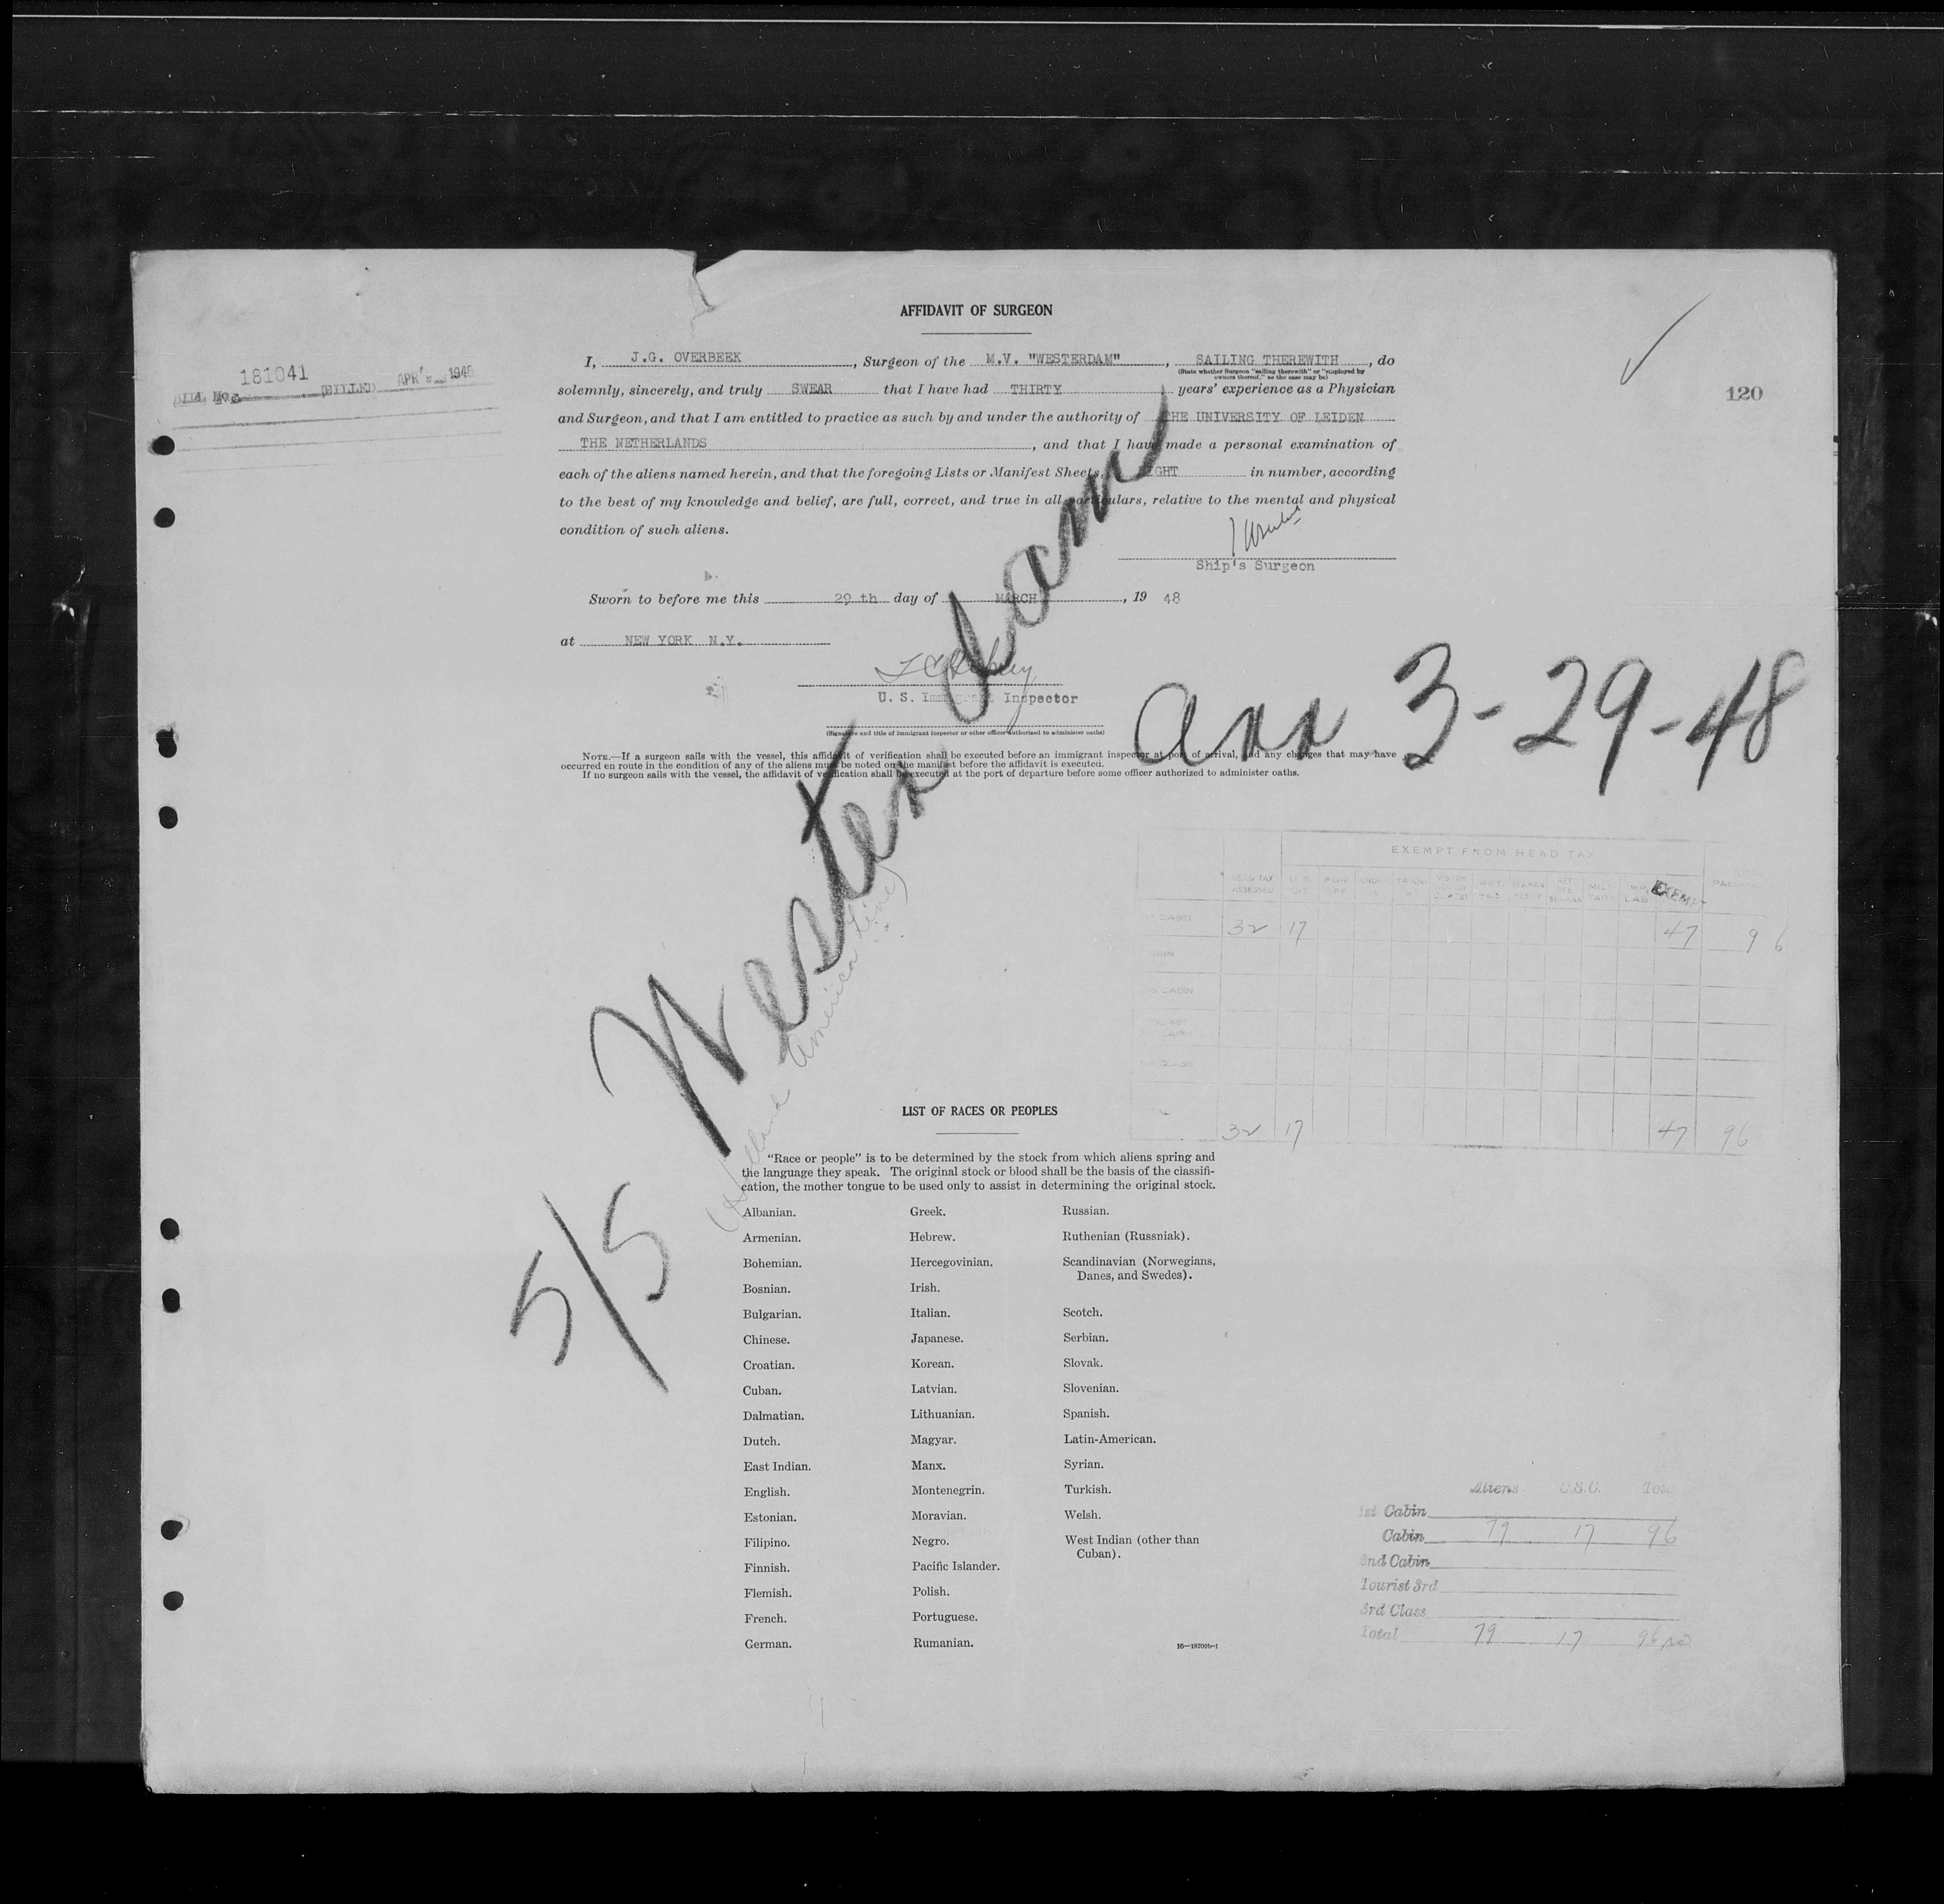 AFFIDAVIT OF SURGEON
120
181041
Bill No. BILLED APR 1948
I, J.G. OVERBEEK, Surgeon of the M.V. "WESTERDAM", SAILING THEREWITH, do
(State whether Surgeon "sailing therewith" or "employed by
owners thereof," as the case may be)
solemnly, sincerely, and truly SWEAR that I have had THIRTY years' experience as a Physician
and Surgeon, and that I am entitled to practice as such by and under the authority of THE UNIVERSITY OF LEIDEN
THE NETHERLANDS, and that I have made a personal examination of
each of the aliens named herein, and that the foregoing Lists or Manifest Sheets, EIGHT in number, according
to the best of my knowledge and belief, are full, correct, and true in all particulars, relative to the mental and physical
condition of such aliens.
Ship's Surgeon
Sworn to before me this 29 th day of MARCH, 19 48
at NEW YORK N.Y.
U. S. Immigrant Inspector
(Signature and title of immigrant inspector or other officer authorized to administer oaths)
NOTE.—If a surgeon sails with the vessel, this affidavit of verification shall be executed before an immigrant inspector at port of arrival, and any changes that may have
occurred en route in the condition of any of the aliens must be noted on the manifest before the affidavit is executed.
If no surgeon sails with the vessel, the affidavit of verification shall be executed at the port of departure before some officer authorized to administer oaths.
arr 3-29-48
S/S Westerdam
(Holland America Line)
EXEMPT FROM HEAD TAX
HEAD TAX ASSESSED U.S. CIT EXEMPT
CABIN 32 17 47 96
CABIN
CABIN
CLASS
32 17 47 96
LIST OF RACES OR PEOPLES
"Race or people" is to be determined by the stock from which aliens spring and
the language they speak. The original stock or blood shall be the basis of the classifi-
cation, the mother tongue to be used only to assist in determining the original stock.
Albanian. Greek. Russian.
Armenian. Hebrew. Ruthenian (Russniak).
Bohemian. Hercegovinian. Scandinavian (Norwegians,
Danes, and Swedes).
Bosnian. Irish.
Bulgarian. Italian. Scotch.
Chinese. Japanese. Serbian.
Croatian. Korean. Slovak.
Cuban. Latvian. Slovenian.
Dalmatian. Lithuanian. Spanish.
Dutch. Magyar. Latin-American.
East Indian. Manx. Syrian.
English. Montenegrin. Turkish.
Estonian. Moravian. Welsh.
Filipino. Negro. West Indian (other than
Cuban).
Finnish. Pacific Islander.
Flemish. Polish.
French. Portuguese.
German. Rumanian.
16—18709b-1
Aliens U.S.C. Total
1st Cabin
Cabin 79 17 96
2nd Cabin
Tourist 3rd
3rd Class
Total 79 17 96